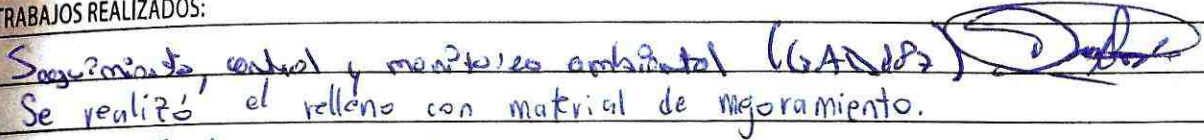 TRABAJOS REALIZADOS:
Seguimiento, control y monitoreo ambiental
Se realizó el relleno con material de mejoramiento.